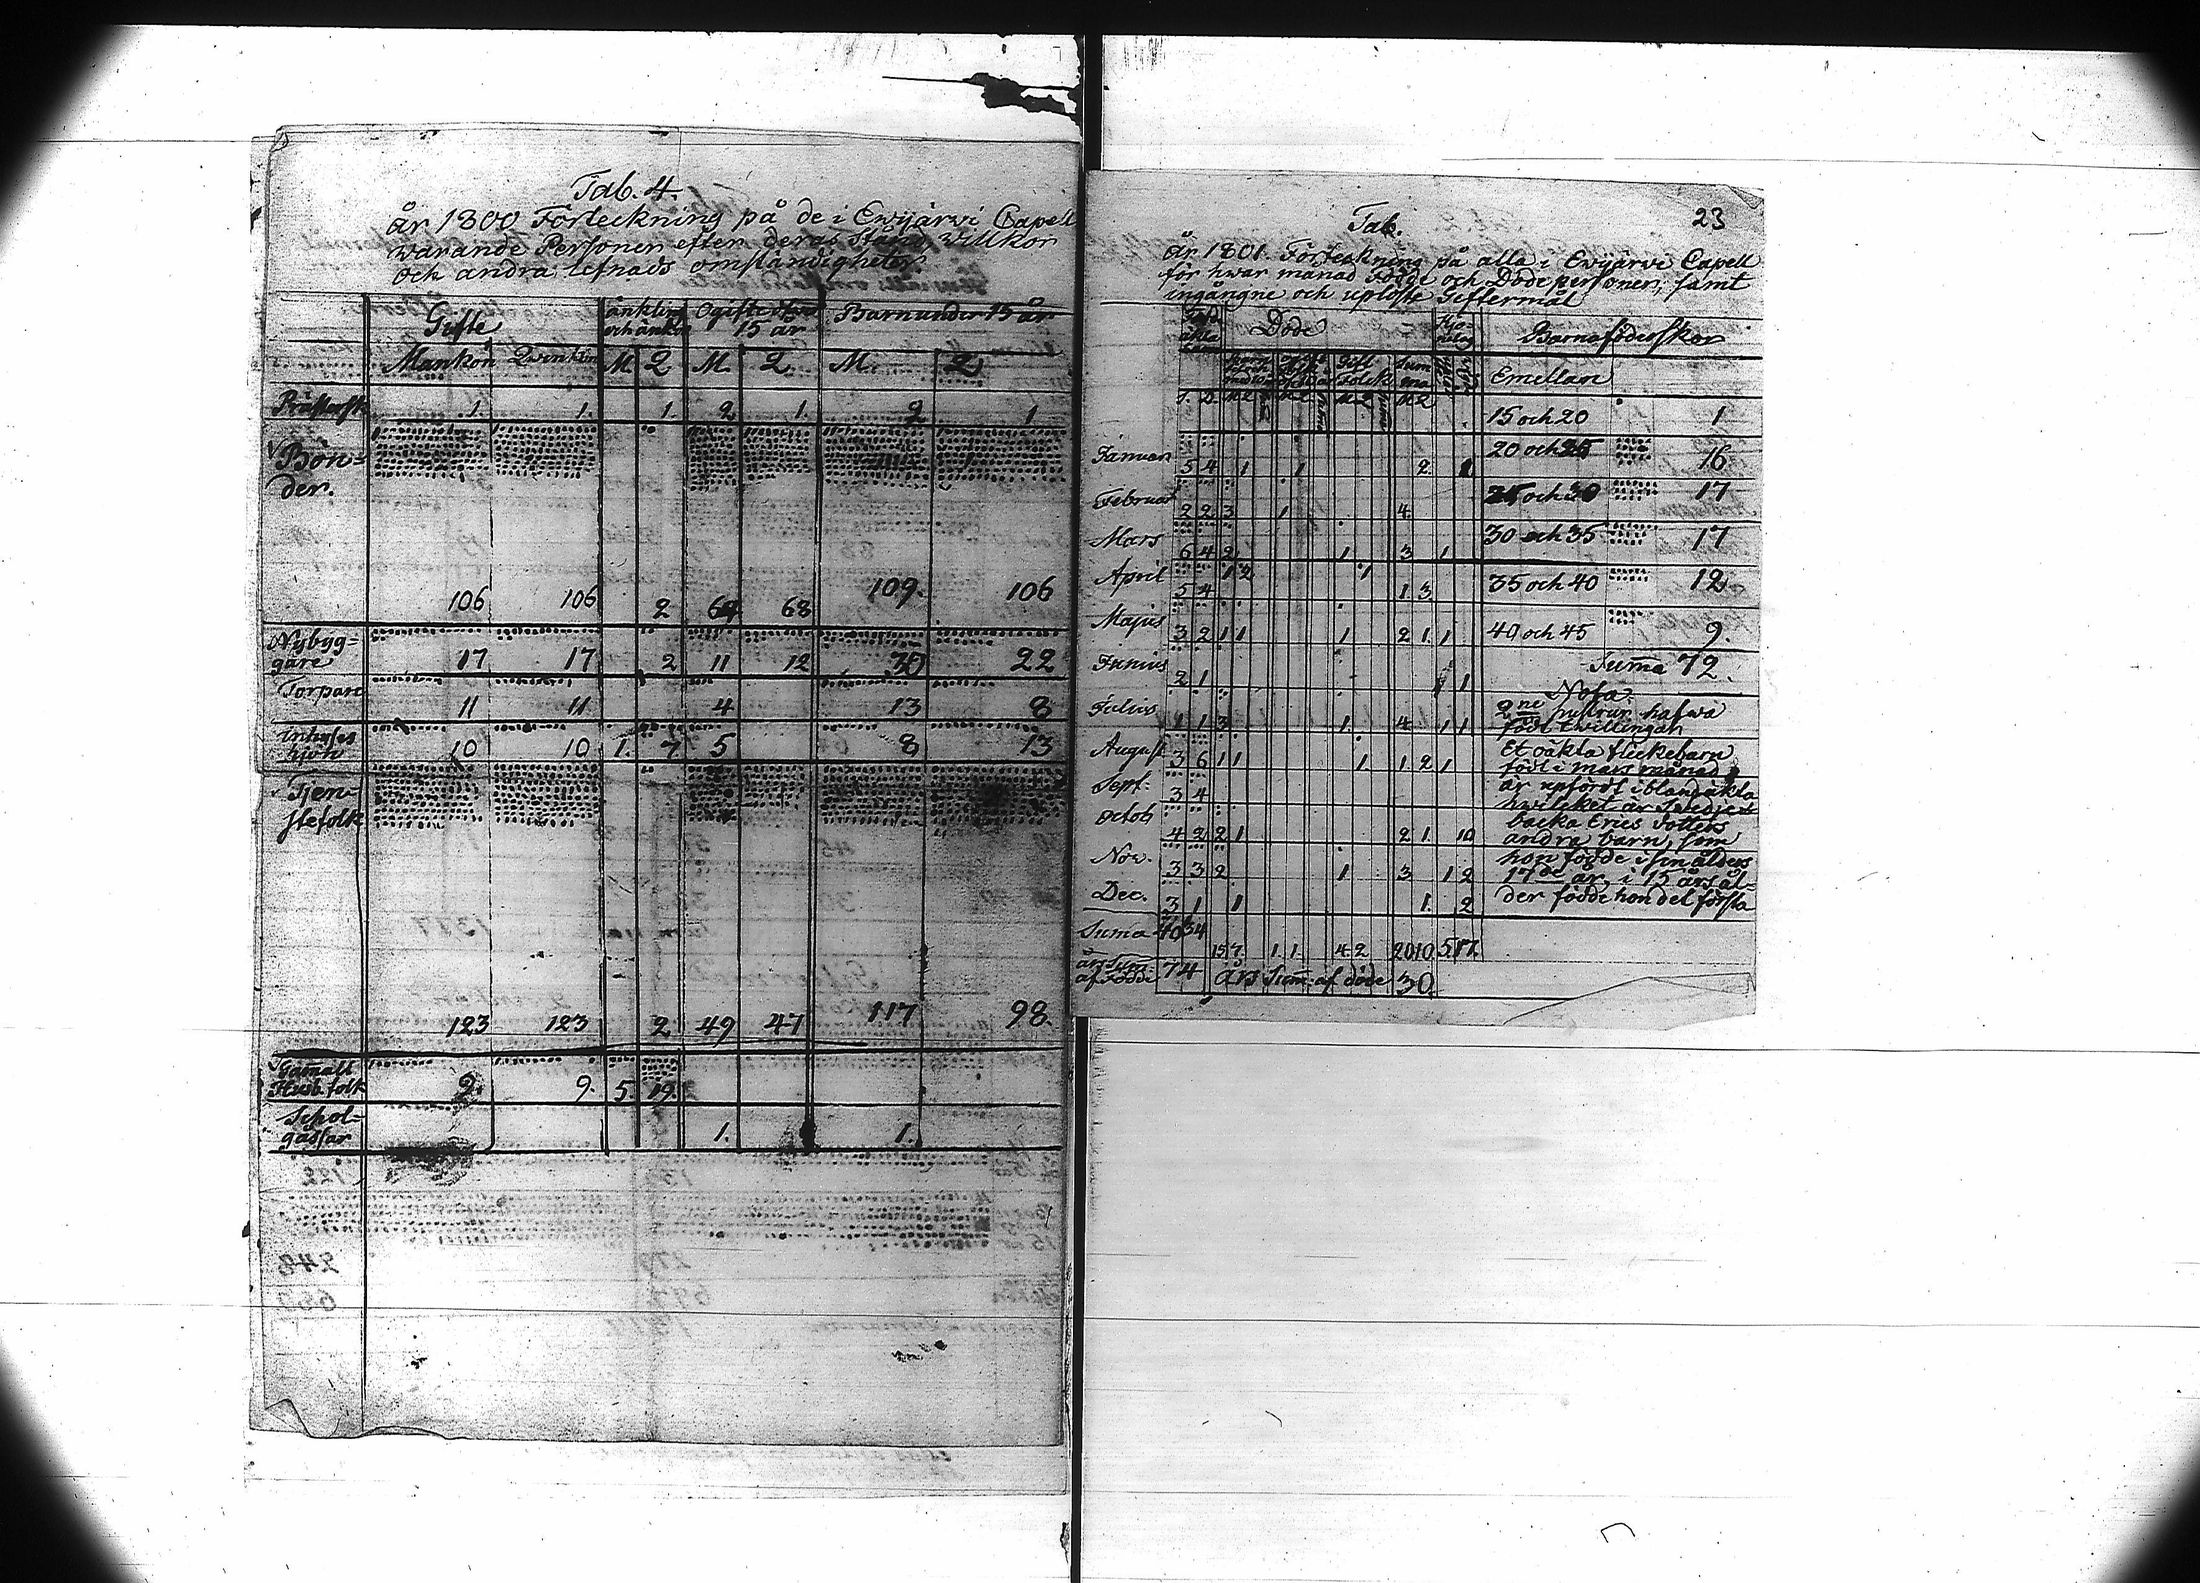 Tab. 4.
år 1800 Förteckning på de i Ewijärwi Capell
warande Personer efter deras Stånd, willkor
och andra lefnads omständigheter
Gifte
Änkling och änkor
Ogifte öfver 15 år
Barn under 15 år
Mankön Qwinkön M Q M. Q. M. Q
Präster 1. 1. 1. 2 1. 2 1
Bön=
der.
106 106 2 64 68 109. 106
Nybyg=
gare 17 17 2 11 12 30 22
Torpare 11 11 4 13 8
Inhyses
hjon 10 10 1. 7. 5 8 13
Tjen=
stefolk
123 123 2 49 47 117 98.
Gamalt
Husb. folk 9. 9. 5. 19.
Schol=
gåssar 1. 1.
23
Tab.
år 1801. Förteckning på alla i Ewijärwi Capell
för hwar månad Födde och Döde personer, samt
ingångne och uplöste Giftermål
Döde
Barnaföderskor
Emellan
15 och 20 1
20 och 25 16
25 och 30 17
30 och 35 17
35 och 40 12
40 och 45 9.
Suma 72.
Januari 5 4 1 1 2 1
Februar 2 2 3 1 4
Mars 6 4 2 1 3 1
April 5 4 1 2 1 1 3
Majus 3 2 1 1 1 2 1 1
Junius 2 1 1
Julius 1 1 3 1. 4 1 1
August 3 6 1 1 1 1 2 1
Sept. 3 4
Octob 4 2 2 1 2 1 10
Nov. 3 3 2 1 3 1 2
Dec. 3 1 1 1. 2
Suma 40 34 15 7. 1. 1. 4 2 20 10 5. 17.
års Sum:
af Födde 74 års Sum: af döde 30.
Nota
2ne hustrur hafwa
födt twillingar
Et oäkta flickebarn
födt i mars månad
är upfördt ibland äkta
hwilcket är
backa Erics dotters
andra barn, som
hon födde i sin ålders
17de år, i 15 års ål=
der födde hon det första